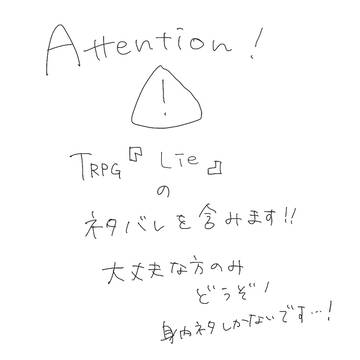 Attention!
!
TRPG『Lie』
の
ネタバレを含みます!!
大丈夫な方のみ
どうぞ!
身内ネタしかないです…!